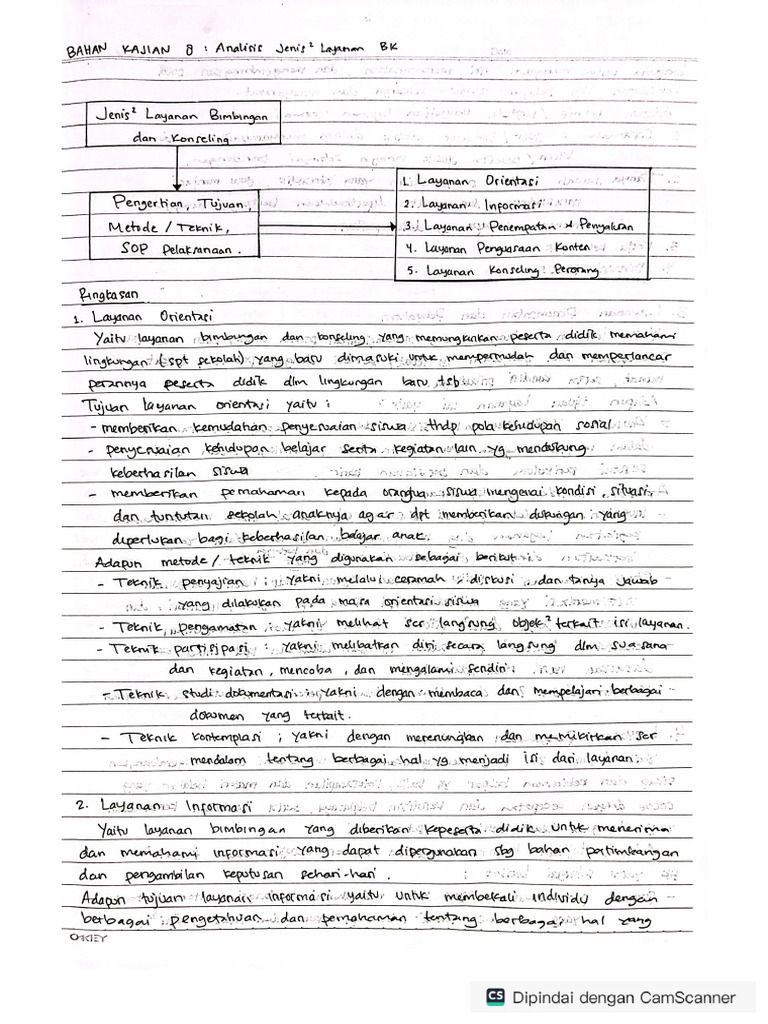 BAHAN KAJIAN 8 : Analisis Jenis² Layanan BK
Jenis² Layanan Bimbingan
dan Konseling
Pengertian, Tujuan,
Metode / Teknik,
SOP Pelaksanaan.
1. Layanan Orientasi
2. Layanan Informasi
3. Layanan Penempatan & Penyaluran
4. Layanan Penguasaan Konten
5. Layanan Konseling Perorang
Ringkasan
1. Layanan Orientasi
Yaitu layanan bimbingan dan konseling yang memungkinkan peserta didik memahami
lingkungan (spt sekolah) yang baru dimasuki untuk mempermudah dan memperlancar
perannya peserta didik dlm lingkungan baru tsb
Tujuan layanan orientasi yaitu :
- memberikan kemudahan penyesuaian siswa thdp pola kehidupan sosial
- penyesuaian kehidupan belajar serta kegiatan lain yg mendukung
keberhasilan siswa
- memberikan pemahaman kepada orangtua siswa mengenai kondisi, situasi,
dan tuntutan sekolah anaknya agar dpt memberikan dukungan yang
diperlukan bagi keberhasilan belajar anak.
Adapun metode / teknik yang digunakan sebagai berikut :
- Teknik penyajian ; yakni melalui ceramah diskusi dan tanya jawab
yang dilakukan pada masa orientasi siswa
- Teknik pengamatan ; yakni melihat scr langsung objek² terkait isi layanan.
- Teknik partisipasi : yakni melibatkan diri secara langsung dlm suasana
dan kegiatan, mencoba, dan mengalami sendiri
- Teknik studi dokumentasi ; yakni dengan membaca dan mempelajari berbagai
dokumen yang terkait.
- Teknik kontemplasi ; yakni dengan merenungkan dan memikirkan scr
mendalam tentang berbagai hal yg menjadi isi dari layanan
2. Layanan Informasi
Yaitu layanan bimbingan yang diberikan kepeserta didik untuk menerima
dan memahami informasi yang dapat dipergunakan sbg bahan pertimbangan
dan pengambilan keputusan sehari-hari.
Adapun tujuan layanan informasi yaitu untuk membekali individu dengan
berbagai pengetahuan dan pemahaman tentang berbagai hal yang
OKEY
CS Dipindai dengan CamScanner